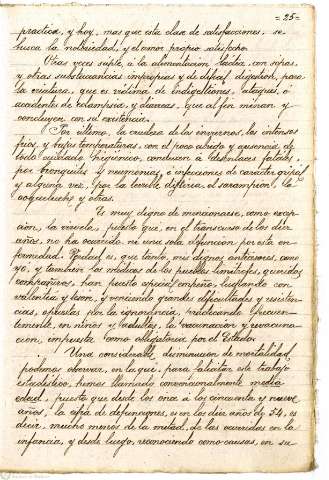 = 25 =
practica, y hoy, mas que esta clase de satisfacciones, se
busca la notoriedad, y el amor propio satisfecho.
Otras veces súple, á la alimentación láctea, con sopas,
y otras substancias impropias y de dificil digestion, para
la criatura, que es victima de indigestiones, ataques, ó
accidentes de eclampsia, y diarreas, que al fin minan y
concluyen con su existencia.
Por último, la crudeza de los inviernos, los intensos
frios, y bajas temperaturas, con el poco abrigo y ausencia de
todo cuidado higienico, conducen a desenlaces fatales,
por bronquitis y neumonias, é infecciones de caracter gripal
y alguna vez, por la terrible difteria, el sarampion, la
coqueluche y otras.
Es muy digno de mencionarse, como excep-
cion, la viruela, puesto que, en el transcurso de los diez
años, no ha ocurrido ni una sola defuncion por esta en-
fermedad. Verdad es, que tanto, mis dignos antecesores, como
yo, y tambien los medicos de los pueblos limitrofes, queridos
compañeros, han puesto especial empeño, luchando con
valentia y teson, y venciendo grandes dificultades y resisten-
cias, opuestas por la ignorancia, practicando frecuen-
temente, en niños y adultos, la vacunacion y revacuna-
cion, impuesta como obligatoria por el Estado.
Una considerable disminucion de mortalidad,
podemos observar, en la que, para facilitar este trabajo
estadistico, hemos llamado convencionalmente media
edad, puesto que desde los once á los cincuenta y nueve
años, la cifra de defunciones, es en los diez años de 54, es
decir, mucho menos de la mitad, de las ocurridas en la
infancia, y desde luego, reconociendo como causas, en su